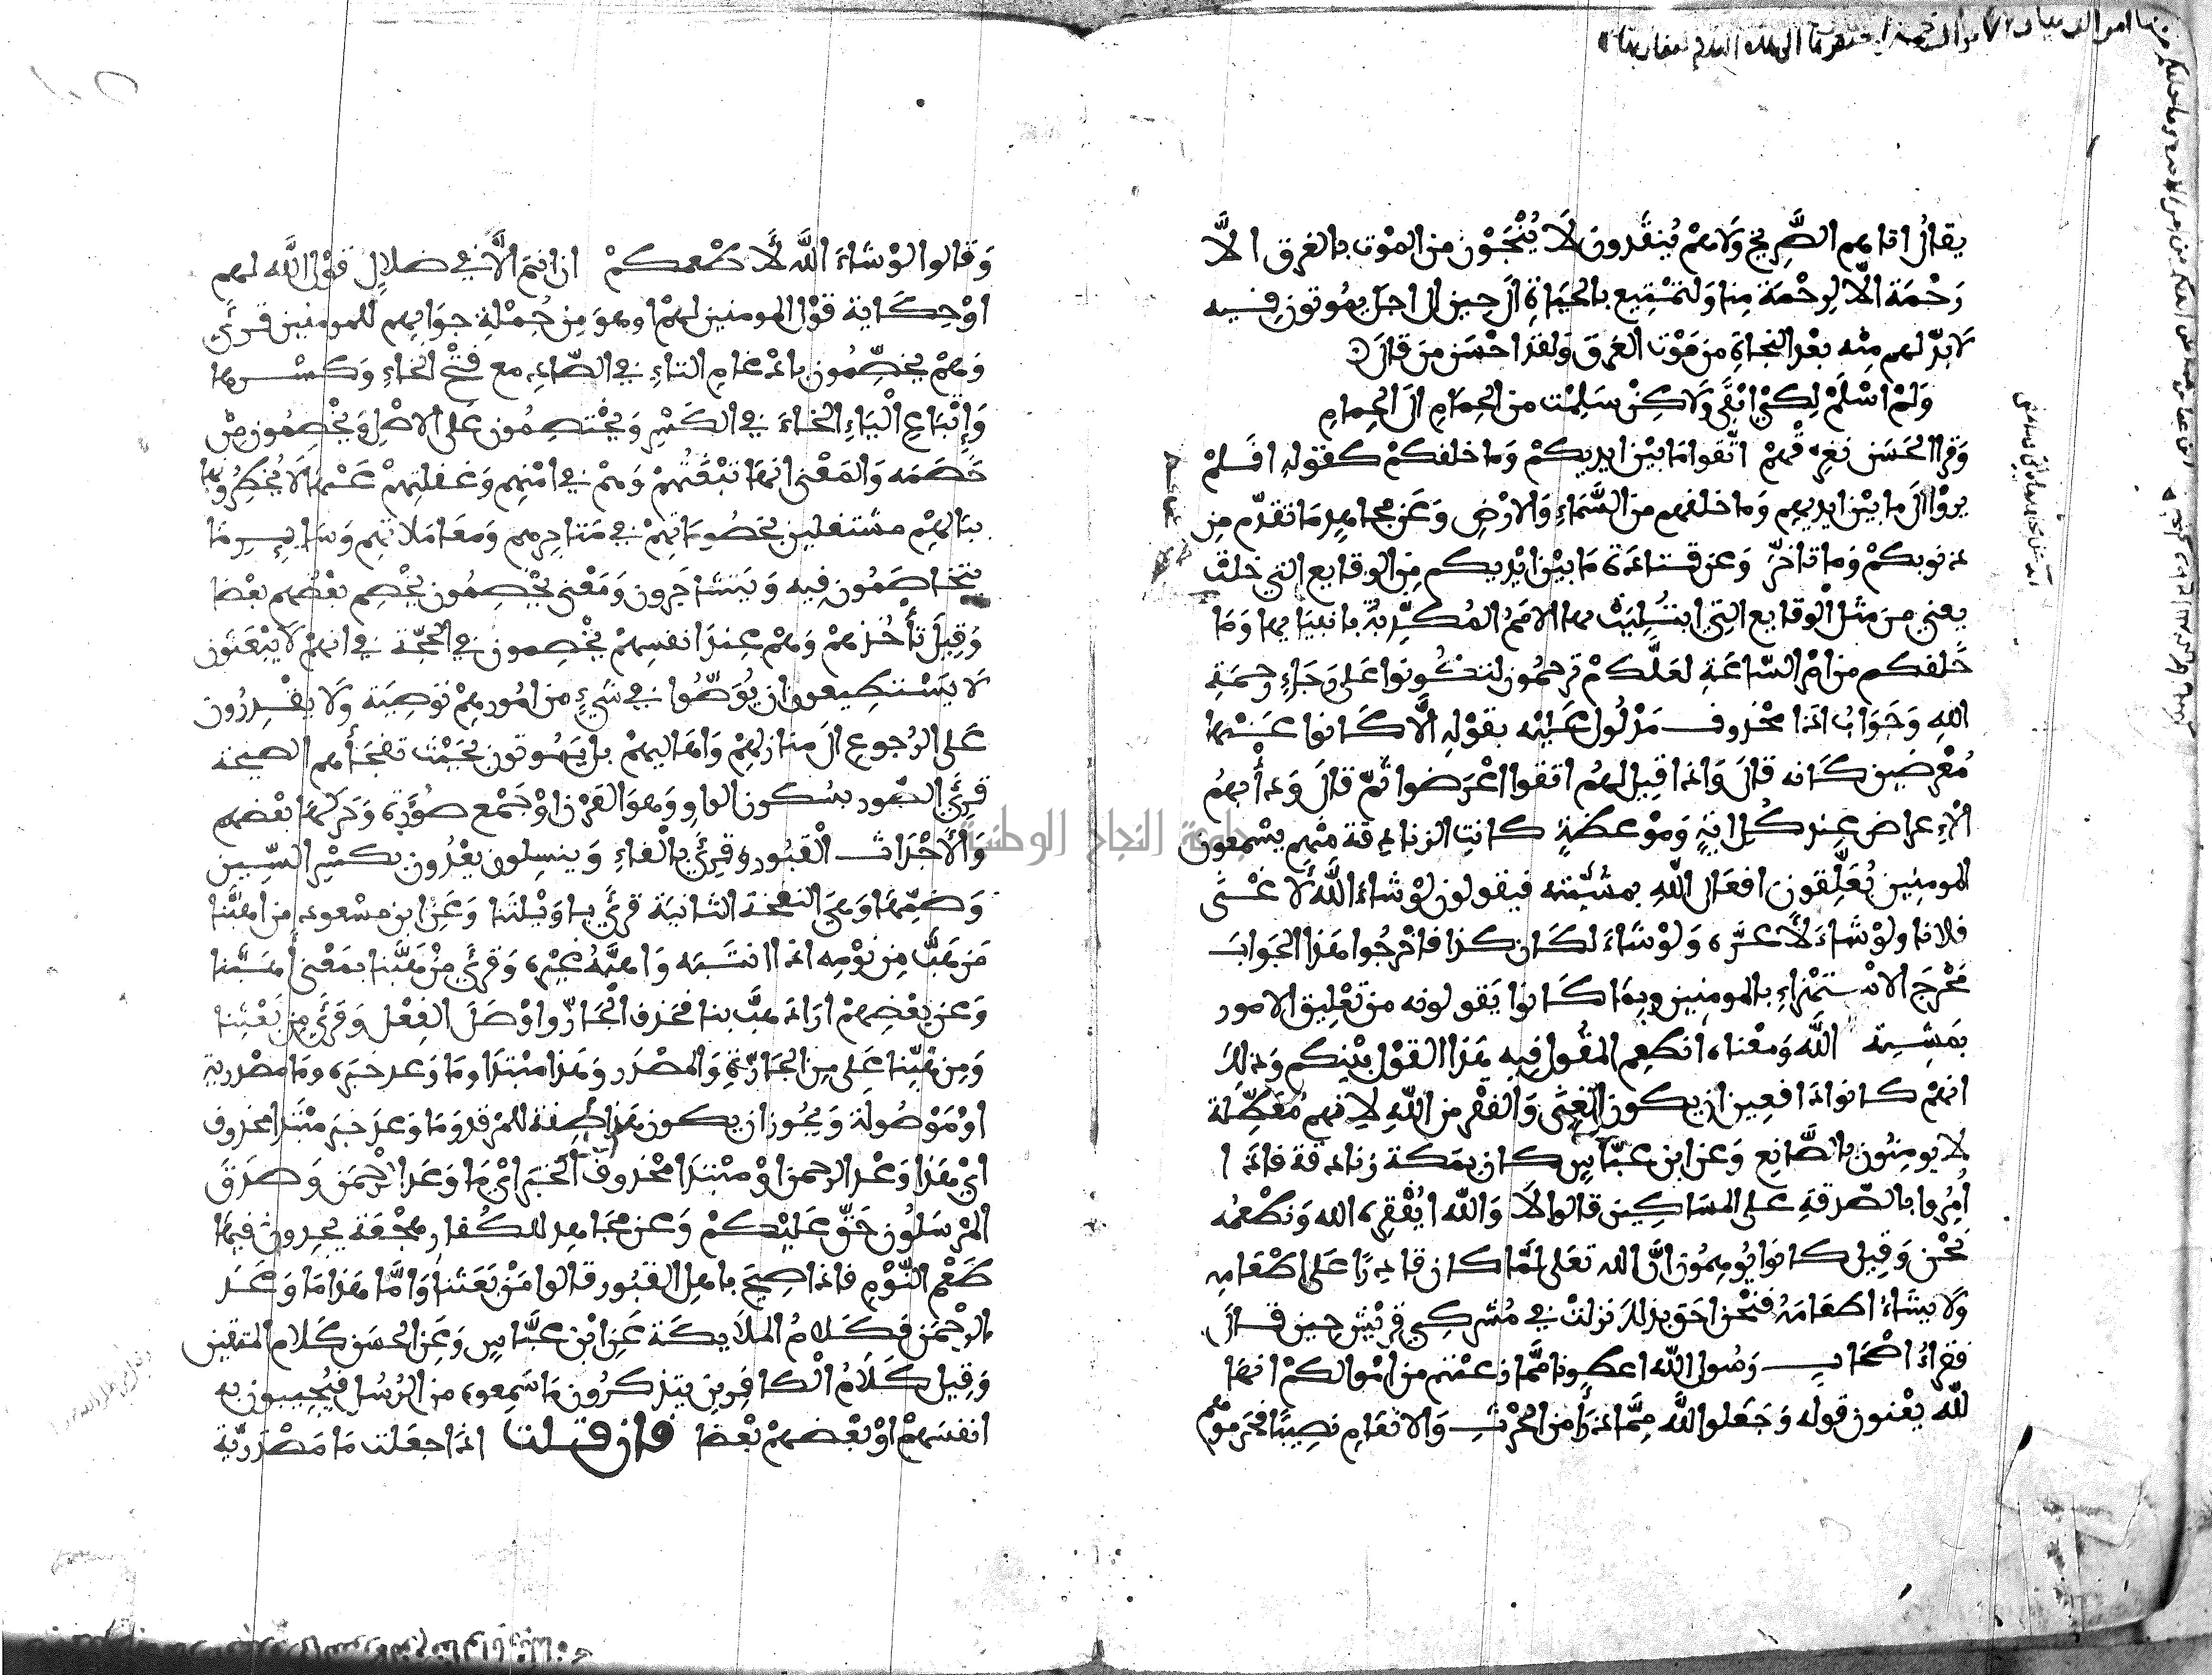 يقال اتاهم الصريخ ولا هم ينقذون لا ينجون من الموت بالغرق الا
رحمة الا لرحمة منا ولتمتيع بالحياة الى حين الى اجل يموتون فيه
لا بد لهم منه بعد النجاة من موت الغرق ولقد احسن من قال
ولم اسلم لكي ابقى ولاكن سلمت من الحمام الى الحمام
وقرا الحسن نغرقهم اتقوا ما بين ايديكم وما خلفكم كقوله افلم
يروا الى ما بين ايديهم وما خلفهم من السماء والارض وعن مجاهد ما تقدم من
ذنوبكم وما تاخر وعن قتادة ما بين ايديكم من الوقايع التي خلت
يعني من مثل الوقايع التي ابتليت بها الامم المكذبة بانبيايها وما
خلفكم من امر الساعة لعلكم ترحمون لتكونوا على رجاء رحمة
الله وجواب اذا محذوف مدلول عليه بقوله الا كانوا عنها
معرضين كانه قال واذا قيل لهم اتقوا اعرضوا ثم قال ودأبهم
الاعراض عند كل اية وموعظة كانت الزنادقة منهم يسمعون
المومنين يعلقون افعال الله بمشيته فيقولون لو شاء الله لاغنى
فلانا ولو شاء لاعزه ولو شاء لكان كذا فاخرجوا هذا الجواب
مخرج الاستهزاء بالمومنين وبما كانوا يقولونه من تعليق الامور
بمشية الله ومعناه انطعم المقول فيه هذا القول بينكم وذلك
انهم كانوا دافعين ان يكون الغنى والفقر من الله لانهم معطلة
لا يومنون بالصانع وعن ابن عباس كان بمكة زنادقة فاذا
امروا بالصدقة على المساكين قالوا لا والله ايفقره الله ونطعمه
نحن وقيل كانوا يوهمون ان الله تعلى لما كان قادرا على اطعامه
ولا يشاء اطعامه فنحن احق بذلك نزلت في مشركي قريش حين قال
فقراء اصحاب رسول الله اعطونا مما زعمتم من اموالكم انها
لله يعنون قوله وجعلوا لله مما ذرا من الحرث والانعام نصيبا فحرموهم
وقالوا لو شاء الله لاطعمكم ان انتم الا في ضلال قول الله لهم
او حكاية قول المومنين لهم او هو من جملة جوابهم للمومنين قرئ
وهم يخصمون بادغام التاء في الصاد مع فتح الخاء وكسرها
وإتباع الياء الخاء في الكسر ويختصمون على الاصل ويخصمون من
خصمه والمعنى انها تبغتهم وهم في امنهم وغفلتهم عنها لا يخطرونها
ببالهم مشتغلين بخصوماتهم في متاجرهم ومعاملاتهم وساير ما
يتخاصمون فيه ويتشاجرون ومعنى يخصمون يخصم بعضهم بعضا
وقيل تأخذهم وهم عند انفسهم يخصمون في الحجة في انهم لا يبعثون
لا يستطيعون ان يوصوا في شيء من امورهم توصية ولا يقدرون
على الرجوع الى منازلهم واهاليهم بل يموتون بحيث تفجأهم الصيحة
قرئ الصور بسكون الواو وهو القرن او جمع صورة وحركها بعضهم
والأجداث القبور وقرئ بالفاء وينسلون يعدون بكسر السين
وضمها وهي النفخة الثانية قرئ يا ويلتنا وعن ابن مسعود من اهبنا
من هب من نومه اذا انتبه واهبه غيره وقرئ من هبنا بمعنى أهبنا
وعن بعضهم اراد هب بنا فحذف الجار واوصل الفعل وقرئ من بعثنا
ومن هبنا على من الجارة والمصدر وهذا مبتدا وما وعد خبره وما مصدرية
او موصولة ويجوز ان يكون هذا صفة للمرقد وما وعد خبر مبتدا محذوف
اي هذا وعد الرحمن او مبتدا محذوف الخبر اي ما وعد الرحمن وصدق
المرسلون حق عليكم وعن مجاهد للكفار هجعة يجدون فيها
طعم النوم فاذا صيح باهل القبور قالوا من بعثنا واما هذا ما وعد
الرحمن فكلام الملايكة عن ابن عباس وعن الحسن كلام المتقين
وقيل كلام الكافرين يتذكرون ما سمعوه من الرسل فيجيبون به
انفسهم او بعضهم بعضا فان قلت اذا جعلت ما مصدرية
جامعة النجاح الوطنية